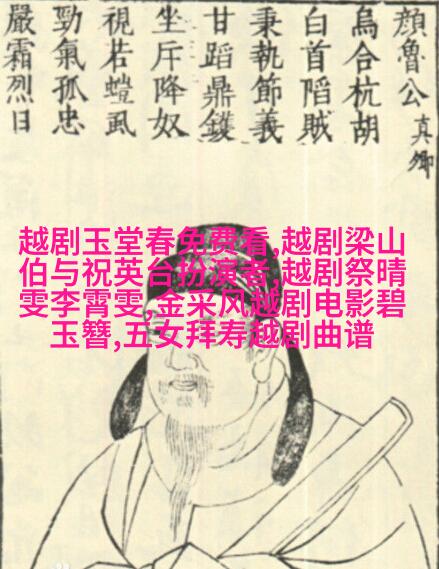 顔魯公真卿
烏合杭胡
白首陷賊
秉執節義
甘蹈鼎鑊
坐斥降奴
視若螘虱
勁氣孤忠
嚴霜烈日
越剧玉堂春免费看,越剧梁山
伯与祝英台扮演者,越剧祭晴
雯李霄雯,金采风越剧电影碧
玉簪,五女拜寿越剧曲谱